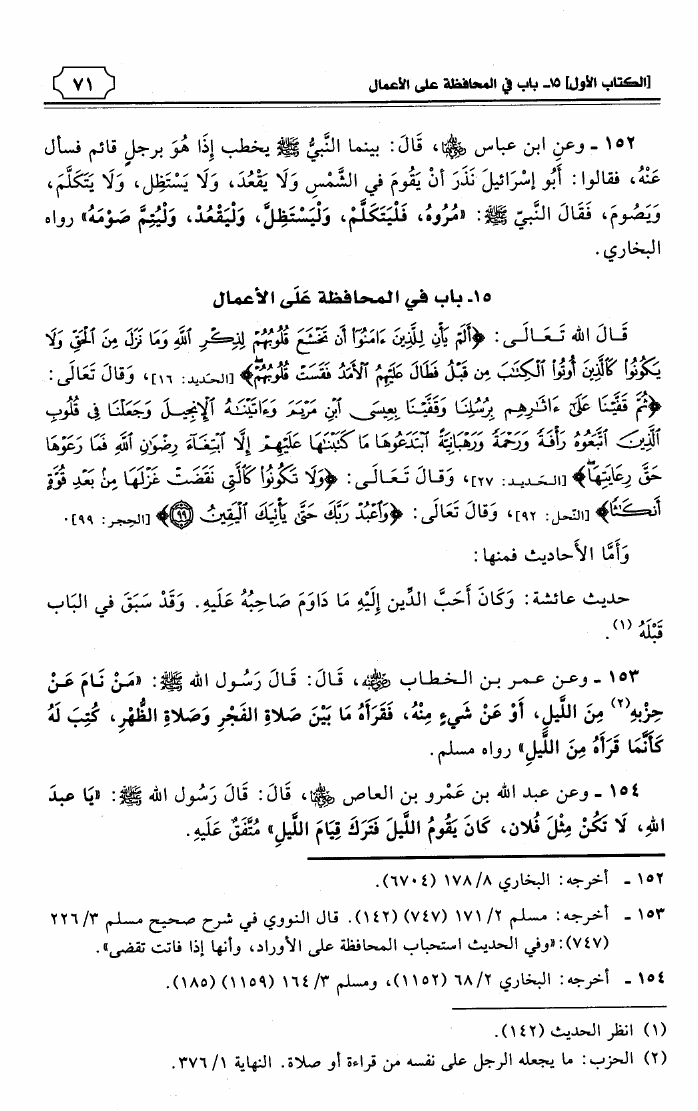 [الكتاب الأول] ١٥ـ باب في المحافظة على الأعمال
٧١
١٥٢ ـ وعن ابن عباس ﵄، قَالَ: بينما النَّبيُّ ﷺ يخطب إِذَا هُوَ برجلٍ قائم فسأل
عَنْهُ، فقالوا: أَبُو إسْرَائيلَ نَذَرَ أنْ يَقُومَ في الشَّمْسِ وَلَا يَقْعُدَ، وَلَا يَسْتَظِل، وَلَا يَتَكَلَّمَ،
وَيَصُومَ، فَقَالَ النَّبيّ ﷺ: «مُرُوهُ، فَلْيَتَكَلَّمْ، وَلْيَسْتَظِلَّ، وَلْيَقْعُدْ، وَلْيُتِمَّ صَوْمَهُ» رواه
البخاري.
١٥ـ باب في المحافظة عَلَى الأعمال
قَالَ الله تَعَالَى: ﴿أَلَمْ يَأْنِ لِلَّذِينَ ءَامَنُوٓا أَن تَخْشَعَ قُلُوبُهُمْ لِذِكْرِ اللَّهِ وَمَا نَزَلَ مِنَ الْحَقِّ وَلَا
يَكُونُوا كَالَّذِينَ أُوتُوا الْكِتَابَ مِن قَبْلُ فَطَالَ عَلَيْهِمُ الْأَمَدُ فَقَسَتْ قُلُوبُهُمْ﴾ [الحَديد: ١٦]، وَقَالَ تَعَالَى:
﴿ثُمَّ قَفَّيْنَا عَلَىٰٓ ءَاثَارِهِم بِرُسُلِنَا وَقَفَّيْنَا بِعِيسَى ابْنِ مَرْيَمَ وَءَاتَيْنَاهُ الْإِنجِيلَ وَجَعَلْنَا فِى قُلُوبِ
الَّذِينَ اتَّبَعُوهُ رَأْفَةً وَرَحْمَةً وَرَهْبَانِيَّةً ابْتَدَعُوهَا مَا كَتَبْنَاهَا عَلَيْهِمْ إِلَّا ابْتِغَآءَ رِضْوَانِ اللَّهِ فَمَا رَعَوْهَا
حَقَّ رِعَايَتِهَا﴾ [الحَديد: ٢٧]، وَقَالَ تَعَالَى: ﴿وَلَا تَكُونُوا كَالَّتِى نَقَضَتْ غَزْلَهَا مِنۢ بَعْدِ قُوَّةٍ
أَنكَاثًا﴾ [النّحل: ٩٢]، وَقَالَ تَعَالَى: ﴿وَاعْبُدْ رَبَّكَ حَتَّىٰ يَأْتِيَكَ الْيَقِينُ ٩٩﴾ [الحِجر: ٩٩].
وَأَمَّا الأحاديث فمنها:
حديث عائشة: وَكَانَ أَحَبَّ الدِّين إِلَيْهِ مَا دَاوَمَ صَاحِبُهُ عَلَيهِ. وَقَدْ سَبَقَ في البَاب
قَبْلَهُ (١).
١٥٣ ـ وعن عمر بن الخطاب ﵁، قَالَ: قَالَ رَسُول الله ﷺ: «مَنْ نَامَ عَنْ
حِزْبِهِ(٢) مِنَ اللَّيلِ، أَوْ عَنْ شَيءٍ مِنْهُ، فَقَرَأَهُ مَا بَيْنَ صَلاةِ الفَجْرِ وَصَلاةِ الظُّهْرِ، كُتِبَ لَهُ
كَأَنَّمَا قَرَأَهُ مِنَ اللَّيلِ» رواه مسلم.
١٥٤ ـ وعن عبد الله بن عَمْرو بن العاص ﵄، قَالَ: قَالَ رَسُول الله ﷺ: «يَا عبدَ
اللهِ، لَا تَكُنْ مِثْلَ فُلان، كَانَ يَقُومُ اللَّيلَ فَتَرَكَ قِيَامَ اللَّيلِ» مُتَّفَقٌ عَلَيهِ.
١٥٢ ـ أخرجه: البخاري ٨/ ١٧٨ (٦٧٠٤).
١٥٣ ـ أخرجه: مسلم ٢/ ١٧١ (٧٤٧) (١٤٢). قال النووي في شرح صحيح مسلم ٣/ ٢٢٦
(٧٤٧): «وفي الحديث استحباب المحافظة على الأوراد، وأنها إذا فاتت تقضى».
١٥٤ ـ أخرجه: البخاري ٢/ ٦٨ (١١٥٢)، ومسلم ٣/ ١٦٤ (١١٥٩) (١٨٥).
(١) انظر الحديث (١٤٢).
(٢) الحزب: ما يجعله الرجل على نفسه من قراءة أو صلاة. النهاية ١/ ٣٧٦.